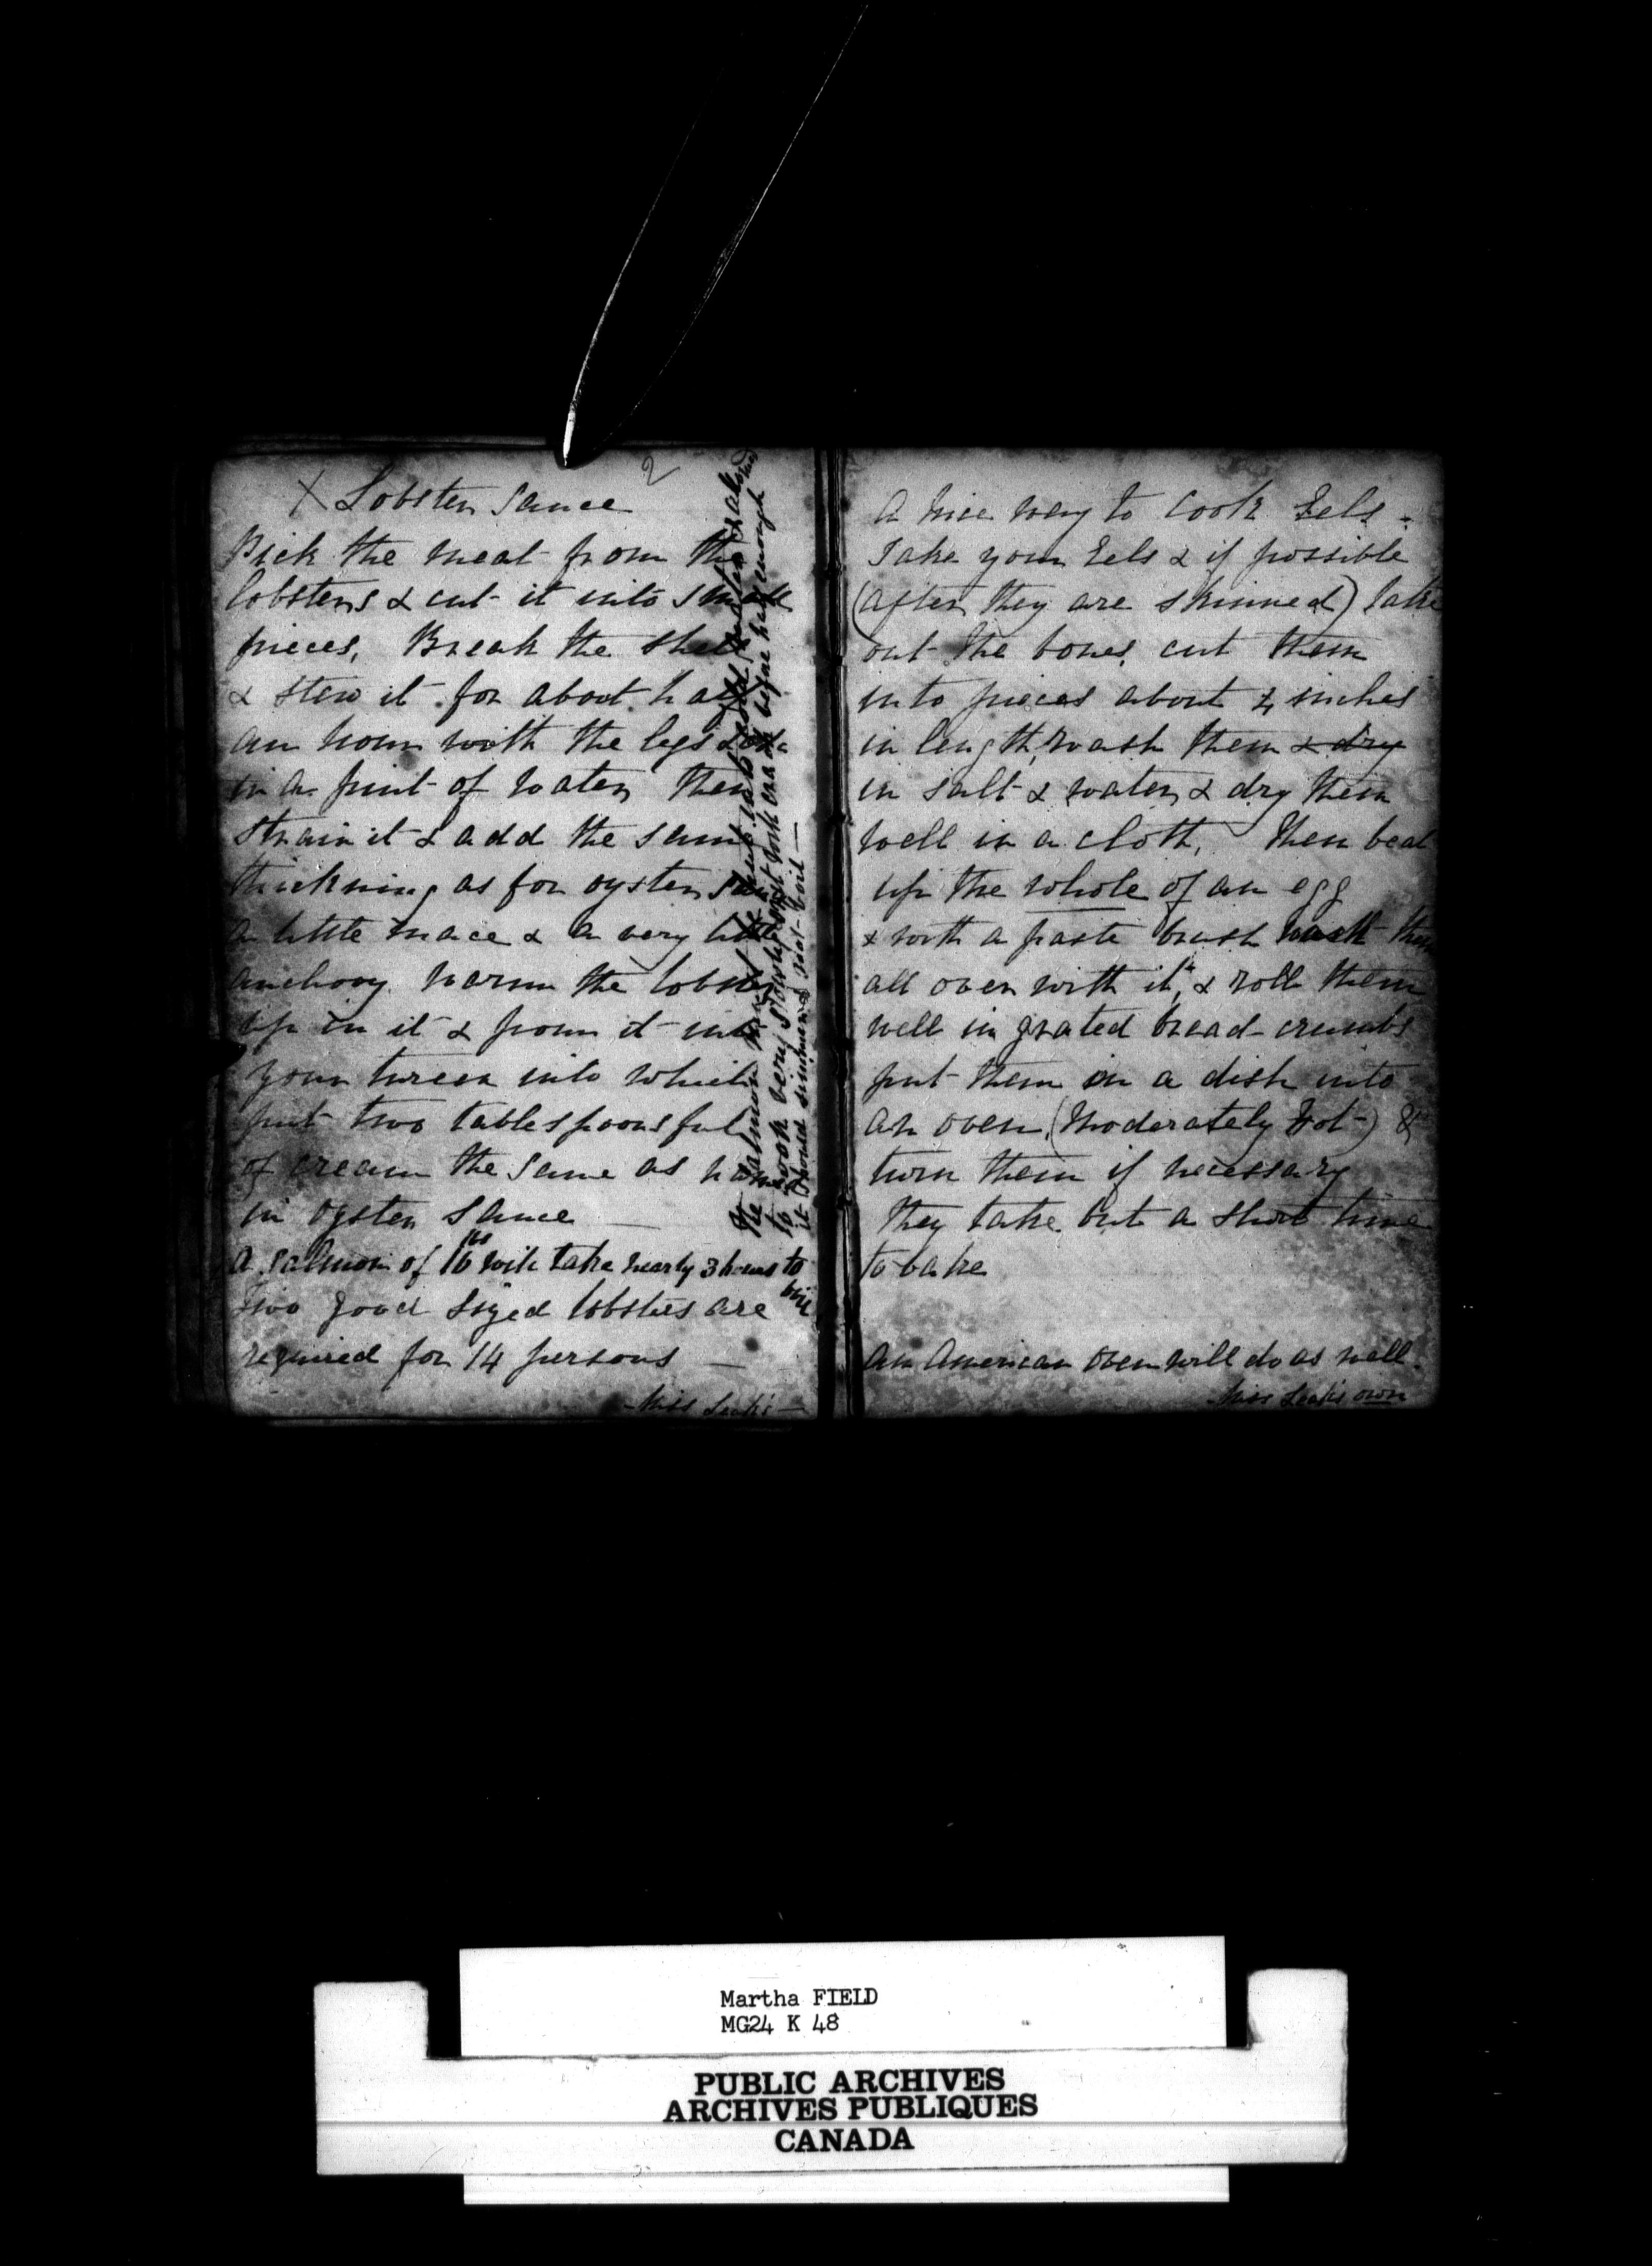 2
X Lobster Sauce
Pick the meat from the
lobsters & cut it into small
pieces, Break the shell
& stew it for about half
an hour with the legs &c
in a pint of water then
strain it & add the same
thickning as for oyster sauce
a little mace & a very little
anchovy warm the lobster
up in it & pour it into
your tureen into which
put two tablespoonsful
of cream the same as
in oyster sauce —
a salmon of 16 lbs will take nearly 3 hours to
boil
Two good sized lobsters are
required for 14 persons —
— Miss Leak's —
the salmon must be put into cold water & also
to cook very slowly or it will crack before half enough
it should simmer & not boil —
A nice way to cook Eels -
Take your Eels & if possible
(after they are skinned) take
out the bones, cut them
into pieces about 4 inches
in length, wash them & dry
in salt & water, & dry them
well in a cloth, then beat
up the whole of an egg
& with a paste brush wash them
all over with it, & roll them
well in grated bread-crumbs
put them in a dish into
an oven, (moderately hot-) &
turn them if necessary
they take but a short time
to bake
An American oven will do as well.
- Miss Leak's own
Martha FIELD
MG24 K 48
PUBLIC ARCHIVES
ARCHIVES PUBLIQUES
CANADA